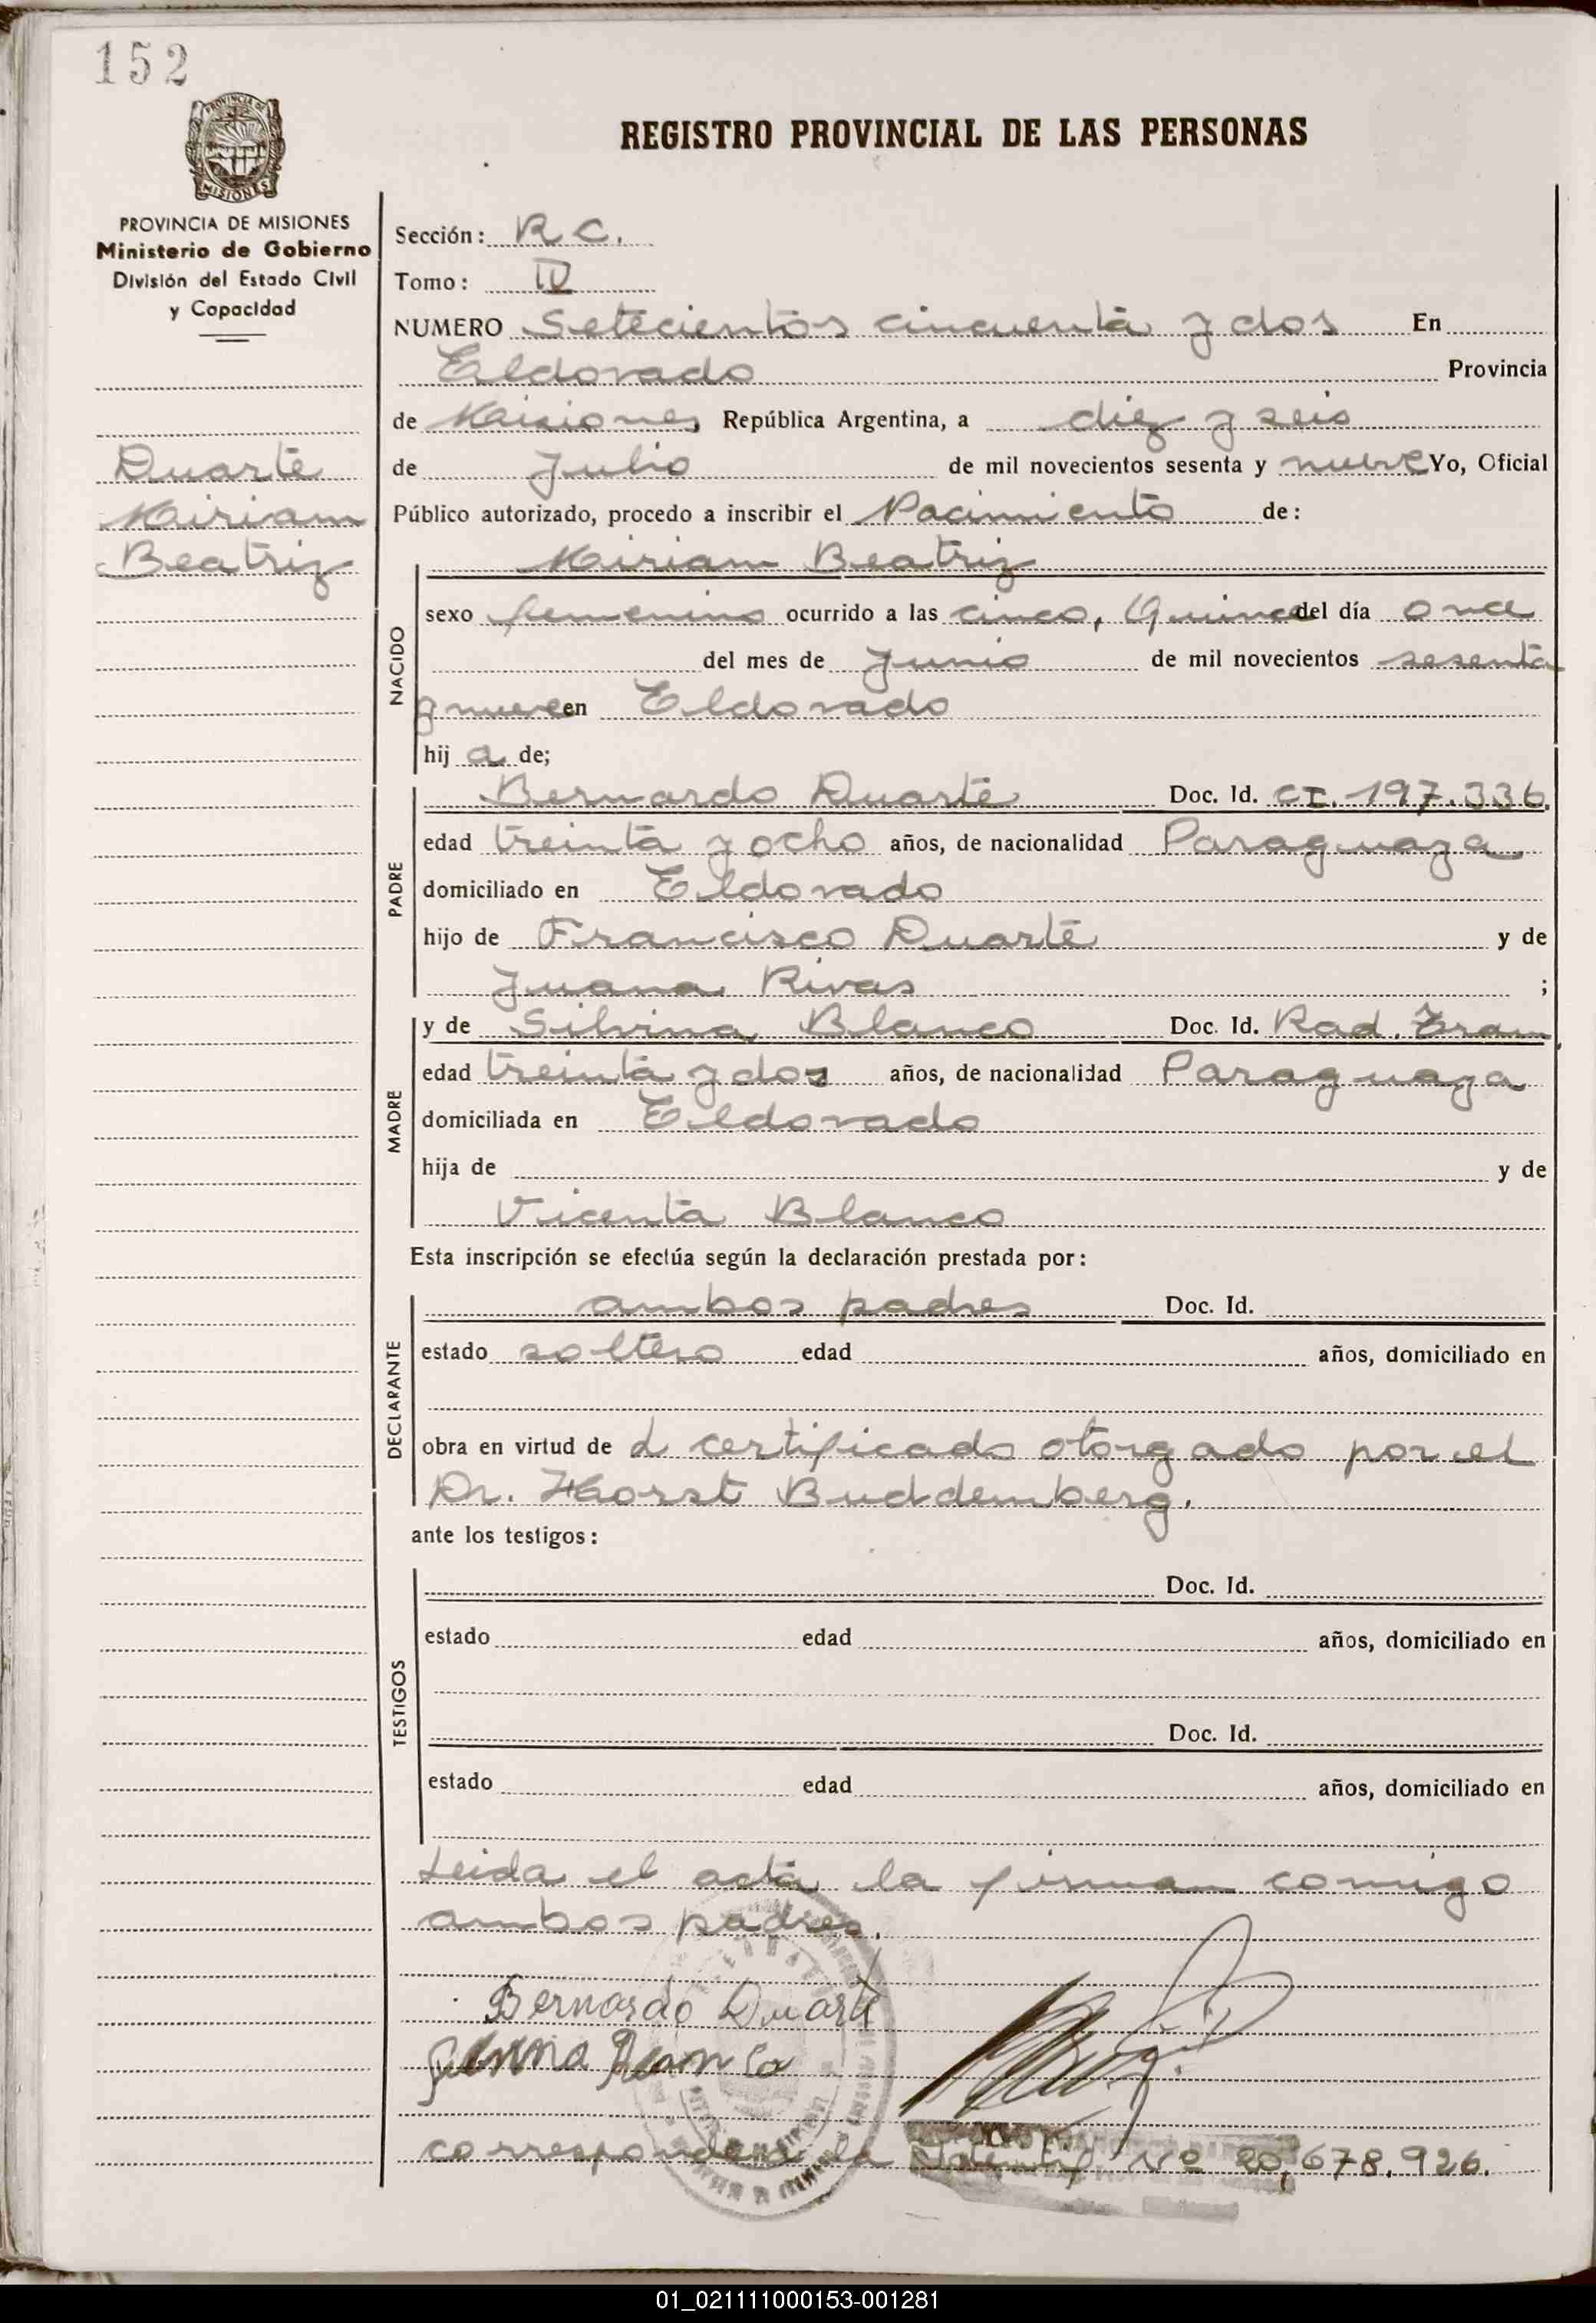 152
PROVINCIA DE
MISIONES
REGISTRO PROVINCIAL DE LAS PERSONAS
PROVINCIA DE MISIONES
Ministerio de Gobierno
División del Estado Civil
y Capacidad
Duarte
Miriam
Beatriz
Sección: R C.
Tomo: IV
NUMERO Setecientos cincuenta y dos En
Eldorado Provincia
de Misiones República Argentina, a diez y seis
de Julio de mil novecientos sesenta y nueve Yo, Oficial
Público autorizado, procedo a inscribir el Nacimiento de:
Miriam Beatriz
NACIDO
sexo femenino ocurrido a las cinco, Quince del día once
del mes de Junio de mil novecientos sesenta
y nueve en Eldorado
hij a de;
PADRE
Bernardo Duarte Doc. Id. CI. 197.336,
edad treinta y ocho años, de nacionalidad Paraguaya
domiciliado en Eldorado
hijo de Francisco Duarte y de
Juana Rivas ;
MADRE
y de Silvina Blanco Doc. Id. Rad. Tram,
edad treinta y dos años, de nacionalidad Paraguaya
domiciliada en Eldorado
hija de y de
Vicenta Blanco
Esta inscripción se efectúa según la declaración prestada por:
DECLARANTE
ambos padres Doc. Id.
estado soltero edad años, domiciliado en
obra en virtud de L certificado otorgado por el
Dr. Horst Buddemberg.
ante los testigos:
TESTIGOS
Doc. Id.
estado edad años, domiciliado en
Doc. Id.
estado edad años, domiciliado en
Leida el acta la firman comigo
ambos padres.
Bernardo Duarte
corresponde la Identif Nº 20,678.926.
01_021111000153-001281